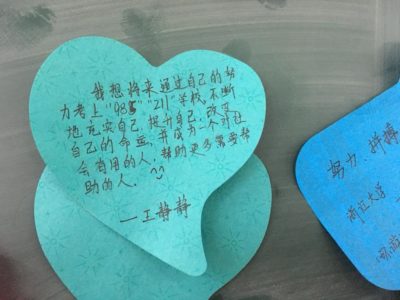 我想将来通过自己的努
力考上"985""211"学校,不断
地充实自己,提升自己,改变
自己的命运,并成为一个对社
会有用的人,帮助更多需要帮
助的人。
—王静静
努力、拼搏
浙江大学